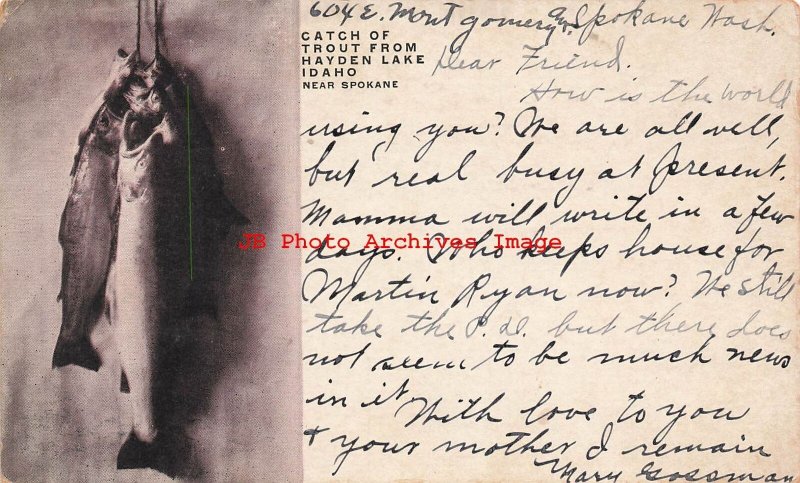 604 E. Montgomery av. Spokane Wash.
CATCH OF
TROUT FROM
HAYDEN LAKE
IDAHO
NEAR SPOKANE
Dear Friend.
How is the world
using you? We are all well,
but real busy at present.
Mamma will write in a few
days. Who keeps house for
Martin Ryan now? We still
take the P. D. but there does
not seem to be much news
in it.
With love to you
+ your mother I remain
Mary Gossman
JB Photo Archives Image